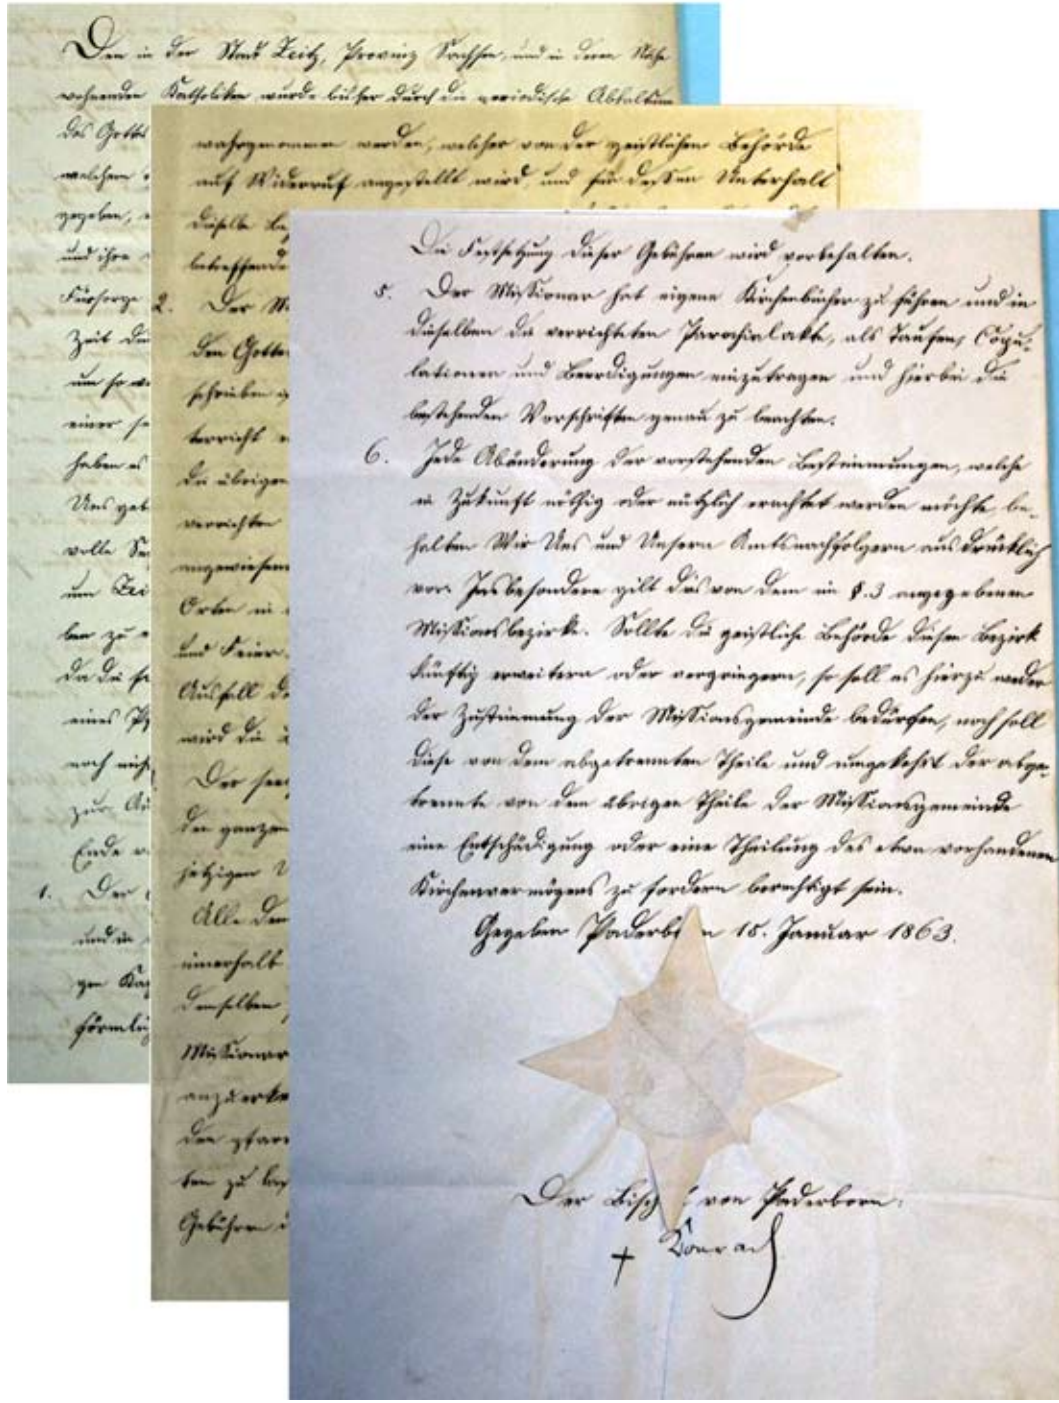 Den in der Stadt Zeitz, Provinz Sachsen, und in deren Nähe
wohnenden Katholiken wurde bisher durch die periodische Abhaltung
des Gottes
welchem
gegeben,
und ihre
Fürsorge
Zeit
um so
einer
haben es
Uns
volle
um Zei
ben zu
da die
eines
noch nicht
zur
Ende
1. Der
und in
gen
förmlich
wahrgenommen werden, welcher von der geistlichen Behörde
auf Widerruf angestellt wird, und für dessen Unterhalt
dieselbe
betreffende
2. Der Mi
den Gottes
schrieben
terricht
die übrigen
verrichten
angewiesenen
Orten in
und Feier
Ausfall
wird die
Der seel
der ganzen
jetzigen
Alle
innerhalb
demselben
Missionar
anzuerke
den pfarr
ten zu
Gebühren
Die Festsetzung dieser Gebühren wird vorbehalten.
5. Der Missionar hat eigene Kirchenbücher zu führen und in
dieselben die verrichteten Parochialakte, als Taufen, Copu-
lationen und Beerdigungen einzutragen und hierbei die
bestehenden Vorschriften genau zu beachten.
6. Jede Abänderung der vorstehenden Bestimmungen, welche
in Zukunft nöthig oder nützlich erachtet werden möchte, be-
halten Wir Uns und Unsern Amtsnachfolgern ausdrücklich
vor. Insbesondere gilt dies von dem im §. 3 angegebenen
Missionsbezirke. Sollte die geistliche Behörde diesen Bezirk
künftig erweitern oder verringern, so soll es hierzu weder
der Zustimmung der Missionsgemeinde bedürfen, noch soll
diese von dem abgetrennten Theile und umgekehrt der abge-
trennte von dem übrigen Theile der Missionsgemeinde
eine Entschädigung oder eine Theilung des etwa vorhandenen
Kirchenvermögens zu fordern berechtigt sein.
Gegeben Paderborn 15. Januar 1863.
Der Bischof von Paderborn.
† Konrad